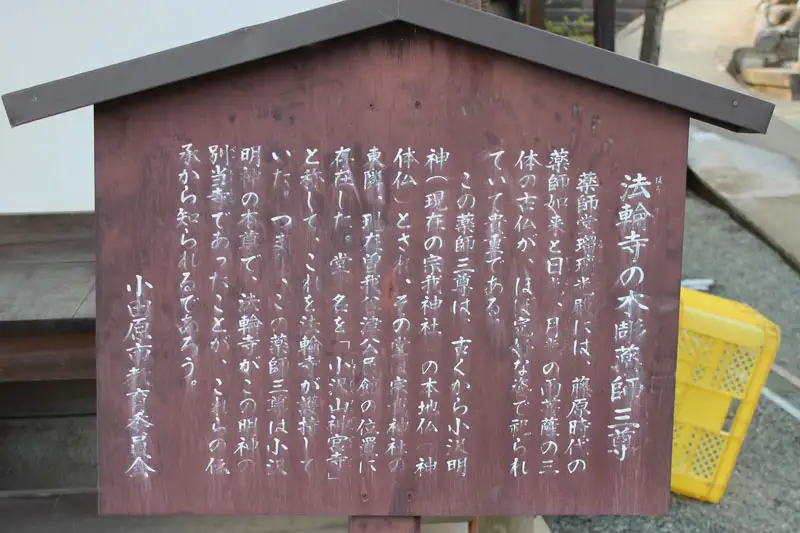 法輪寺の木彫薬師三尊
薬師堂瑠璃光殿には、藤原時代の
薬師如来と日光、月光の両菩薩の三
体の古仏が、ほぼ完好な姿で祀られ
ていて貴重である
この薬師三尊は、古くから小沢明
神(現在の宗我神社 の本地仏(神
体仏)とされ、その堂 宗我神社の
東側、現在曽我 公民館の位置に
存在した。堂 名を「小沢山神宮寺」
と称して、これを法輪寺が護持して
いた。つまり、この薬師三尊は小沢
明神の本尊で、法輪寺がこの明神の
別当寺であったことが、これらの伝
承から知られるであろう。
小田原市教育委員会